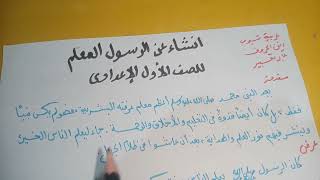 انشاء عن الرسول المعلم
للصف الأول الإعدادي
مقدمة
يعد النبي محمد صلى الله عليه وسلم أعظم معلم عرفته البشرية فهو لم يكن نبيًا
فقط بل كان أيضًا قدوة في التعليم والأخلاق والرحمة جاء ليعلم الناس الخير
وينشر فيهم نور العلم والهداية بعد أن عاشوا في ظلام
عرض
كان الرسول صلى الله عليه